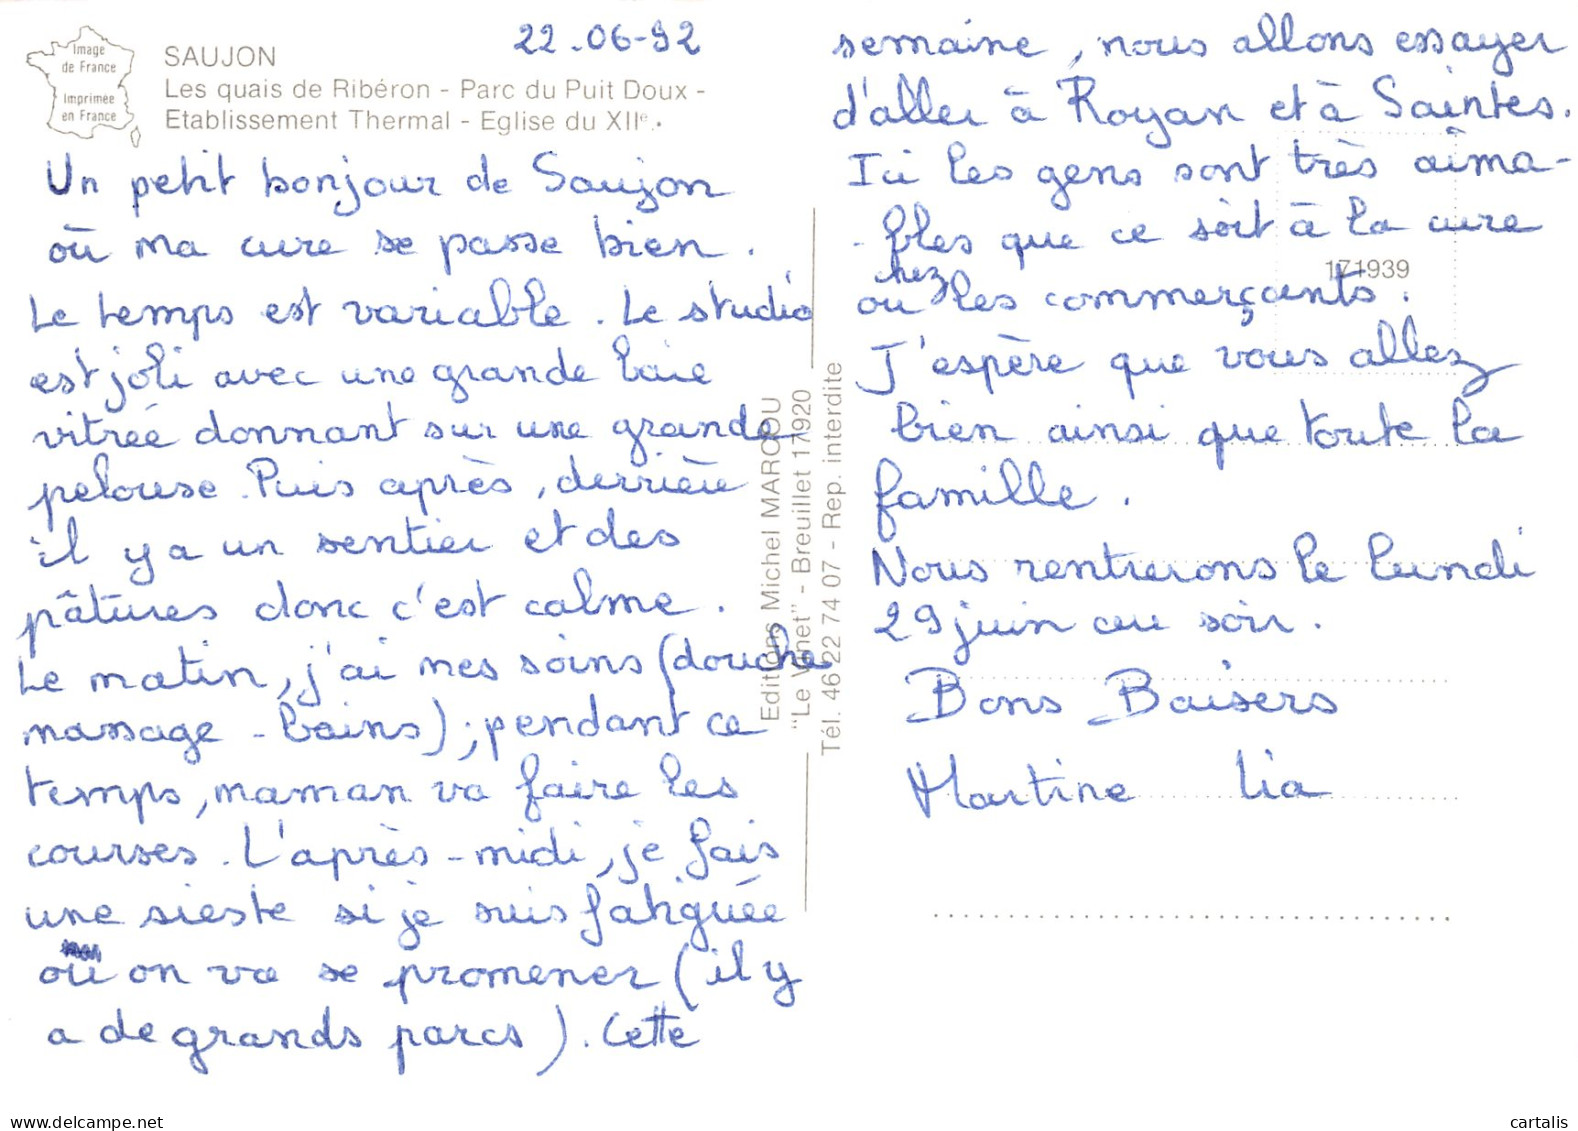 Image
de France
Imprimée
en France
SAUJON
Les quais de Ribéron - Parc du Puit Doux -
Etablissement Thermal - Eglise du XIIe.
22.06-92
Un petit bonjour de Saujon
où ma cure se passe bien.
Le temps est variable. Le studio
est joli avec une grande baie
vitrée donnant sur une grande
pelouse. Puis après, derrière
il y a un sentier et des
pâtures donc c'est calme.
Le matin, j'ai mes soins (douche
massage - bains); pendant ce
temps, maman va faire les
courses. L'après-midi, je fais
une sieste si je suis fatiguée
ou on va se promener (il y
a de grands parcs). Cette
semaine, nous allons essayer
d'aller à Royan et à Saintes.
Ici les gens sont très aima-
-bles que ce soit à la cure
ou chez les commerçants.
J'espère que vous allez
bien ainsi que toute la
famille.
Nous rentrerons le lundi
29 juin au soir.
Bons Baisers
Martine Lia
171939
Editions Michel MARCOU
"Le Vinet" - Breuillet 17920
Tél. 46 22 74 07 - Rep. interdite
www.delcampe.net
cartalis